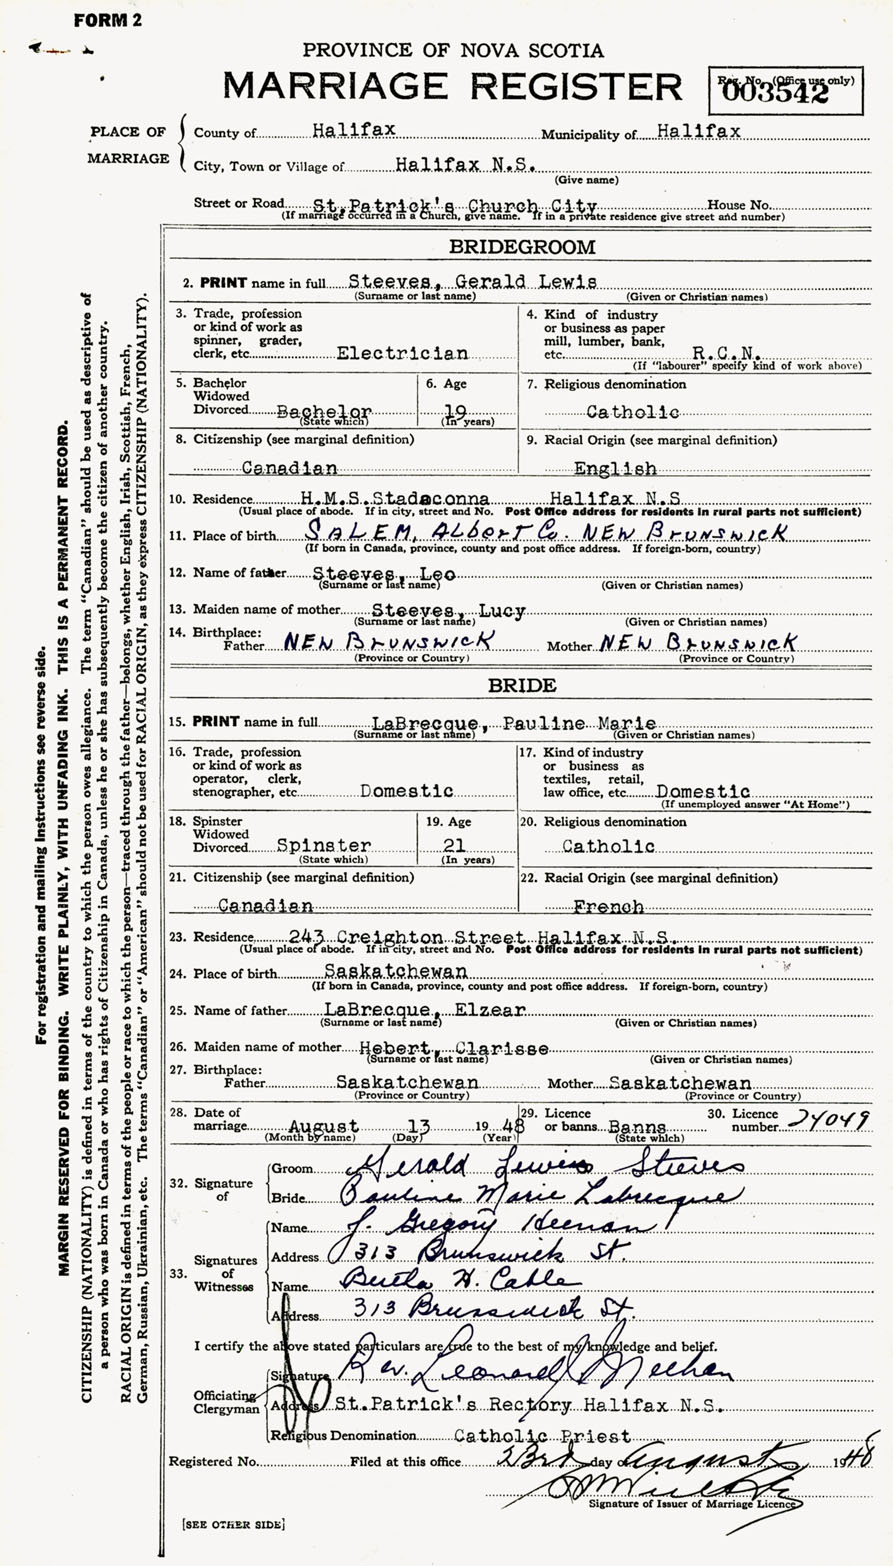 FORM 2
PROVINCE OF NOVA SCOTIA
MARRIAGE REGISTER
Reg. No. (Office use only)
003542
PLACE OF MARRIAGE
County of Halifax Municipality of Halifax
City, Town or Village of Halifax N.S.
(Give name)
Street or Road St.Patrick's Church City House No.
(If marriage occurred in a Church, give name. If in a private residence give street and number)
BRIDEGROOM
2. PRINT name in full Steeves, Gerald Lewis
(Surname or last name) (Given or Christian names)
3. Trade, profession
or kind of work as
spinner, grader,
clerk, etc. Electrician
4. Kind of industry
or business as paper
mill, lumber, bank,
etc. R.C.N.
(If "labourer" specify kind of work above)
5. Bachelor
Widowed
Divorced Bachelor
(State which)
6. Age
19
(In years)
7. Religious denomination
Catholic
8. Citizenship (see marginal definition)
Canadian
9. Racial Origin (see marginal definition)
English
10. Residence H.M.S.Stadaconna Halifax N.S
(Usual place of abode. If in city, street and No. Post Office address for residents in rural parts not sufficient)
11. Place of birth SALEM, Albert Co. NEW BRUNSWICK
(If born in Canada, province, county and post office address. If foreign-born, country)
12. Name of father Steeves, Leo
(Surname or last name) (Given or Christian names)
13. Maiden name of mother Steeves, Lucy
(Surname or last name) (Given or Christian names)
14. Birthplace:
Father NEW BRUNSWICK Mother NEW BRUNSWICK
(Province or Country) (Province or Country)
BRIDE
15. PRINT name in full LaBrecque, Pauline Marie
(Surname or last name) (Given or Christian names)
16. Trade, profession
or kind of work as
operator, clerk,
stenographer, etc. Domestic
17. Kind of industry
or business as
textiles, retail,
law office, etc. Domestic
(If unemployed answer "At Home")
18. Spinster
Widowed
Divorced Spinster
(State which)
19. Age
21
(In years)
20. Religious denomination
Catholic
21. Citizenship (see marginal definition)
Canadian
22. Racial Origin (see marginal definition)
French
23. Residence 243 Creighton Street Halifax N.S.
(Usual place of abode. If in city, street and No. Post Office address for residents in rural parts not sufficient)
24. Place of birth Saskatchewan
(If born in Canada, province, county and post office address. If foreign-born, country)
25. Name of father LaBrecque, Elzear
(Surname or last name) (Given or Christian names)
26. Maiden name of mother Hebert, Clarisse
(Surname or last name) (Given or Christian names)
27. Birthplace:
Father Saskatchewan Mother Saskatchewan
(Province or Country) (Province or Country)
28. Date of
marriage August 13 1948
(Month by name) (Day) (Year)
29. Licence
or banns Banns
(State which)
30. Licence
number 24049
32. Signature of
Groom Gerald Lewis Steeves
Bride Pauline Marie Labrecque
33. Signatures of Witnesses
Name J. Gregory Keenan
Address 313 Brunswick St.
Name Bertha H. Cable
Address 313 Brunswick St.
I certify the above stated particulars are true to the best of my knowledge and belief.
Officiating Clergyman
Signature Rev. Leonard J Meehan
Address St.Patrick's Rectory Halifax N.S.
Religious Denomination Catholic Priest
Registered No. Filed at this office 23rd day August 1948
Signature of Issuer of Marriage Licence
[SEE OTHER SIDE]
For registration and mailing instructions see reverse side.
MARGIN RESERVED FOR BINDING. WRITE PLAINLY, WITH UNFADING INK. THIS IS A PERMANENT RECORD.
CITIZENSHIP (NATIONALITY) is defined in terms of the country to which the person owes allegiance. The term "Canadian" should be used as descriptive of
a person who was born in Canada or who has rights of Citizenship in Canada, unless he or she has subsequently become the citizen of another country.
RACIAL ORIGIN is defined in terms of the people or race to which the person—traced through the father—belongs, whether English, Irish, Scottish, French,
German, Russian, Ukrainian, etc. The terms "Canadian" or "American" should not be used for RACIAL ORIGIN, as they express CITIZENSHIP (NATIONALITY).